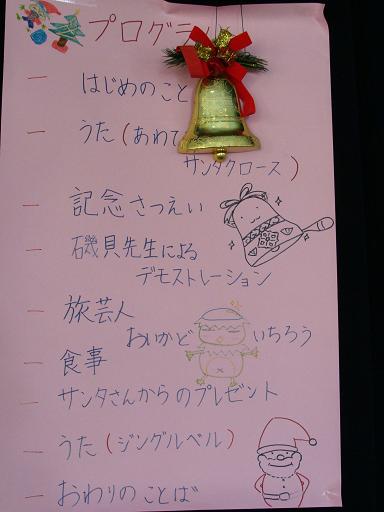 プログラ
一 はじめのこと
一 うた(あわて
サンタクロース)
一 記念さつえい
一 磯貝先生による
デモストレーション
一 旅芸人
おいかど いちろう
一 食事
一 サンタさんからのプレゼント
一 うた(ジングルベル)
一 おわりのことば